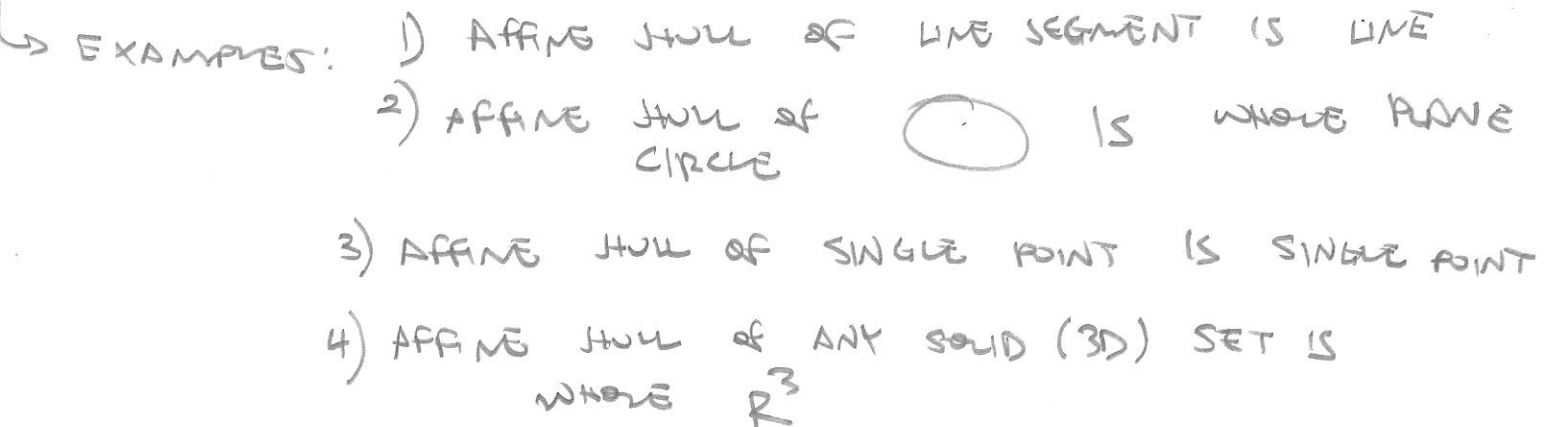 ↳ EXAMPLES: 1) AFFINE HULL OF LINE SEGMENT IS LINE
2) AFFINE HULL OF IS WHOLE PLANE
CIRCLE
3) AFFINE HULL OF SINGLE POINT IS SINGLE POINT
4) AFFINE HULL OF ANY SOLID (3D) SET IS
WHOLE R³